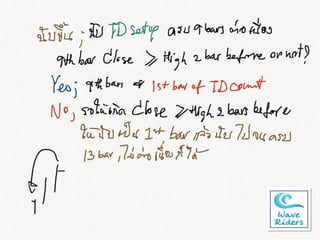 นับขึ้น ; นับ TD setup ครบ 9 bars ต่อเนื่อง
9th bar close ≥ High 2 bar before or not?
Yes; 9th bars = 1st bar of TD count
No, รอให้เกิด Close ≥ High 2 bars before
ให้นับเป็น 1st bar แล้วนับไปจนครบ
13 bar, ไม่ต่อเนื่องก็ได้
Wave
Riders